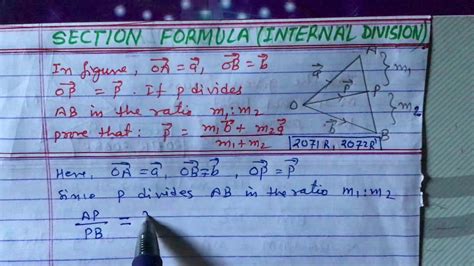 SECTION FORMULA (INTERNAL DIVISION)
In figure, $\vec{OA} = \vec{a}$, $\vec{OB} = \vec{b}$
$\vec{OP} = \vec{P}$. If P divides
AB in the ratio m₁:m₂
prove that: $\vec{P} = \frac{m_1\vec{b} + m_2\vec{a}}{m_1 + m_2}$
A
$\vec{a}$
m₁
$\vec{P}$
P
O
m₂
$\vec{b}$
B
2071R, 2072R
Here, $\vec{OA} = \vec{a}$, $\vec{OB} = \vec{b}$, $\vec{OP} = \vec{P}$
Since P divides AB in the ratio m₁:m₂
$\frac{AP}{PB} =$